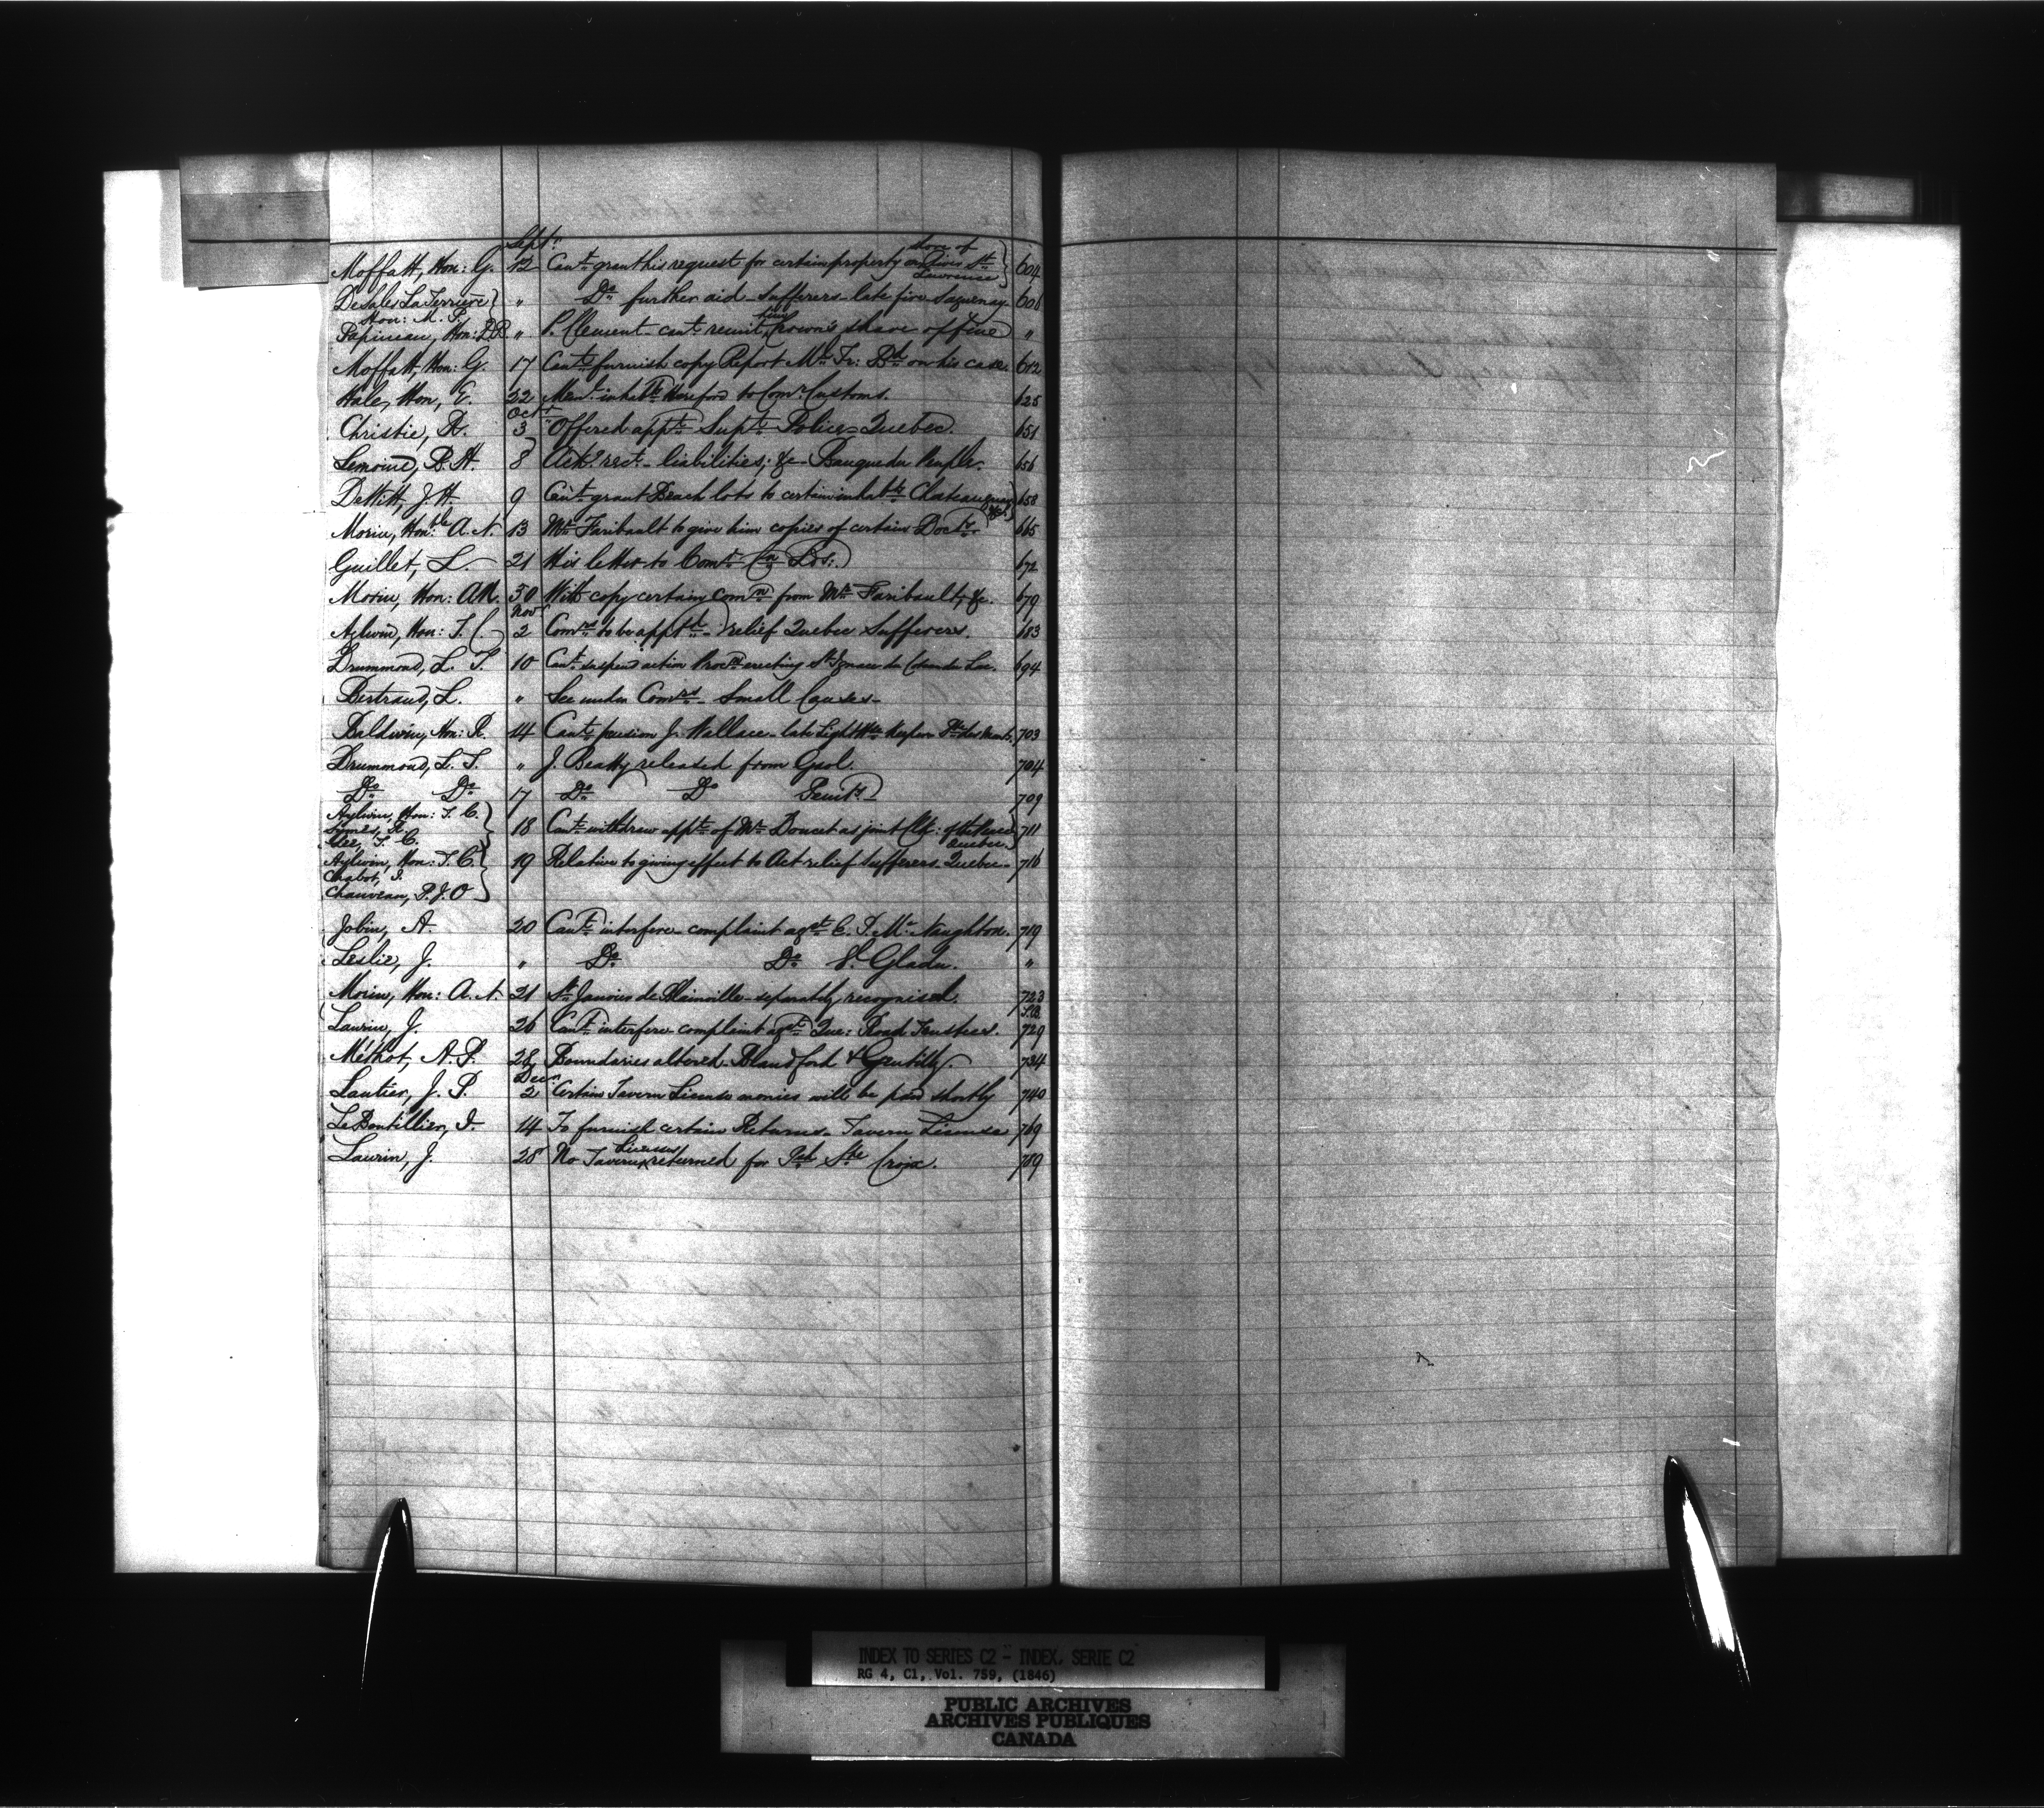 Septr
Moffatt, Hon: G. 12 Cant. grant his request for certain property on shore of River St. Lawrence 604
De Sales La Terrière " Do further aid - sufferers - late fire Saguenay. 606
Hon: M. P.
Papineau, Hon: D.B. " P. Clement - cant. remit him Crown's share of fine "
Moffatt, Hon: G. 17 Cant. furnish copy Report Mr. Tr: Bd on his case. 612
Hale, Hon, E. 22 Meml. inhabts Hereford to Comr. Customs. 625
Octr
Christie, R. 3 Offered appt. Supt. Police - Quebec. 651
Lemoine, B. H. 8 Ackd. rect. - liabilities, &c - Banque du Peuple. 656
DeWitt, J. H. 9 Cant. grant Beach lots to certain inhabts. Chateauguay &c. 658
Morin, Honble. A. N. 13 Mr. Faribault to give him copies of certain Docts. 665
Guillet, L. 21 His letter to Comr. Cn Lds: 672
Morin, Hon: A.N. 30 With copy certain Comn from Mr. Faribault, &c. 679
Novr
Aylwin, Hon: T. C. 2 Comrs to be apptd - relief Quebec Sufferers. 683
Drummond, L. T. 10 Cant. suspend action Procn erecting St. Ignace du Coteau du Lac. 694
Bertrand, L. " See under Comrs - Small Causes -
Baldwin, Hon: R. 14 Cant. pension J. Wallace - late Light Hse Keeper Pte des Monts. 703
Drummond, L. T. " J. Beatty released from Gaol. 704
Do. Do. 17 Do. Do Penity. 709
Aylwin, Hon: T. C.
Symes, R. 18 Cant. withdraw appt. of Mr. Doucet as joint Clk: of the Peace Quebec. 711
Gee, T. C.
Aylwin, Hon: T. C. 19 Relative to giving effect to Act relief Sufferers. Quebec - 716
Chabot, J.
Chauveau, P. J. O
Jobin, A. 20 Cant. interfere - complaint agst. E. T. McNaughton. 719
Leslie, J. " Do. Do. V. Gladu. "
Morin, Hon: A. N. 21 St. Janvier de Blainville - separately recognised. 723
Laurin, J. 26 Cant. interfere - complaint agst. Que: Road Trustees. 729
Méthot, A. P. 28 Boundaries altered - Blandford & Gentilly. 734
Decr.
Lantier, J. P. 2 Certain Tavern License monies will be paid shortly 740
LeBoutillier, J. 14 To furnish certain Returns - Tavern License 769
Laurin, J. 28 No Tavern Licenses returned for Psh Ste Croix. 789
INDEX TO SERIES C2 - INDEX, SERIE C2
RG 4, C1, Vol. 759, (1846)
PUBLIC ARCHIVES
ARCHIVES PUBLIQUES
CANADA